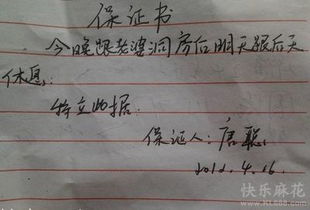 保证书
今晚跟老婆洞房后明天跟后天
休息.
特立此据.
保证人:唐聪.
2012.4.16.
快乐麻花
www.KL688.com